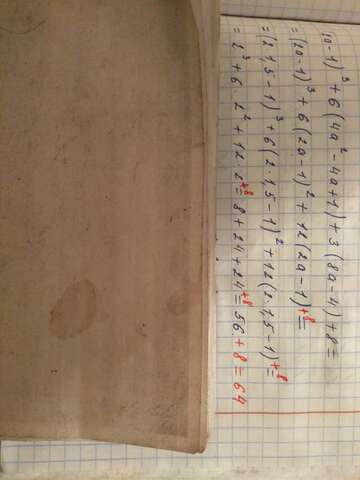 (2a-1)³+6(4a²-4a+1)+3(8a-4)+8=
=(2a-1)³+6(2a-1)²+12(2a-1)+8=
=(2·1,5-1)³+6(2·1,5-1)²+12(2·1,5-1)+8=
=2³+6·2²+12·2+8=8+24+24+8=56+8=64